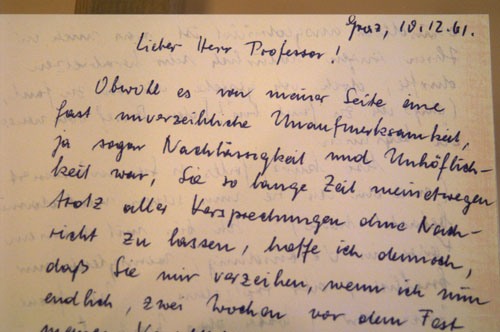 Graz, 10.12.61.
Lieber Herr Professor!
Obwohl es von meiner Seite eine
fast unverzeihliche Unaufmerksamkeit,
ja sogar Nachlässigkeit und Unhöflich-
keit war, Sie so lange Zeit meinetwegen
trotz aller Versprechungen ohne Nach-
richt zu lassen, hoffe ich dennoch,
daß Sie mir verzeihen, wenn ich nun
endlich, zwei Wochen vor dem Fest